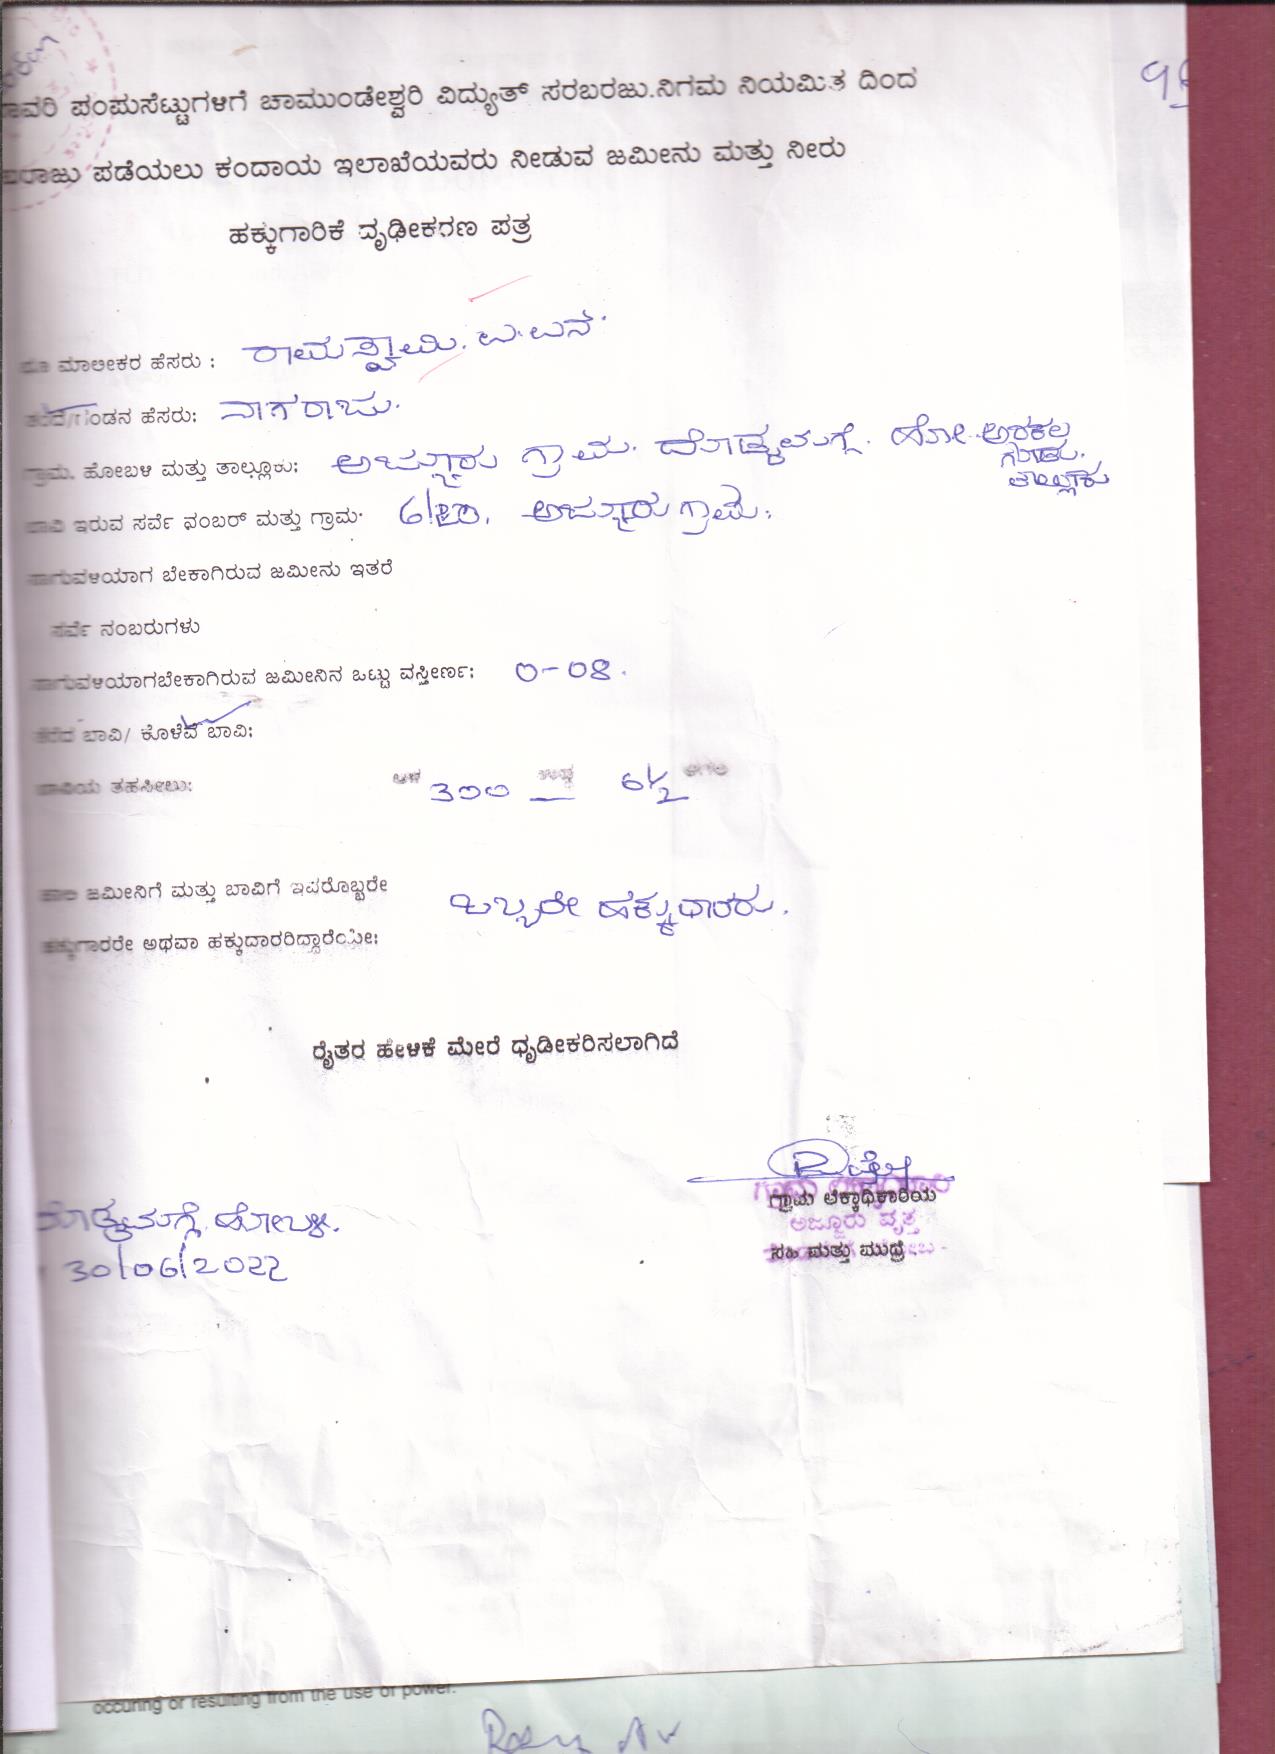 ಪಂಪುಸೆಟ್ಟುಗಳಿಗೆ ಚಾಮುಂಡೇಶ್ವರಿ ವಿದ್ಯುತ್ ಸರಬರಜು.ನಿಗಮ ನಿಯಮಿತ ದಿಂದ
ಪಡೆಯಲು ಕಂದಾಯ ಇಲಾಖೆಯವರು ನೀಡುವ ಜಮೀನು ಮತ್ತು ನೀರು
ಹಕ್ಕುಗಾರಿಕೆ ದೃಢೀಕರಣ ಪತ್ರ
ಮಾಲೀಕರ ಹೆಸರು : ರಾಮಸ್ವಾಮಿ.
ತಂದೆ/ಗಂಡನ ಹೆಸರು: ನಾಗರಾಜು.
ಗ್ರಾಮ, ಹೋಬಳಿ ಮತ್ತು ತಾಲ್ಲೂಕು: ಅಜ್ಜೂರು ಗ್ರಾಮ. ದೊಡ್ಡಮಗ್ಗೆ. ಹೋ. ಅರಕಲ
ಗೂಡು.
ತಾಲ್ಲೂಕು
ಬಾವಿ ಇರುವ ಸರ್ವೆ ನಂಬರ್ ಮತ್ತು ಗ್ರಾಮ: ಅಜ್ಜೂರು ಗ್ರಾಮ.
ಸಾಗುವಳಿಯಾಗ ಬೇಕಾಗಿರುವ ಜಮೀನು ಇತರೆ
ಸರ್ವೆ ನಂಬರುಗಳು
ಸಾಗುವಳಿಯಾಗಬೇಕಾಗಿರುವ ಜಮೀನಿನ ಒಟ್ಟು ವಸ್ತೀರ್ಣ: 0-08.
ತೆರೆದ ಬಾವಿ/ ಕೊಳೆವೆ ಬಾವಿ:
ಬಾವಿಯ ತಹಸೀಲು: ಆಳ 300 ಉದ್ದ 6½ ಅಗಲ
ಜಮೀನಿಗೆ ಮತ್ತು ಬಾವಿಗೆ ಇವರೊಬ್ಬರೇ
ಒಬ್ಬರೇ ಹಕ್ಕುದಾರರು.
ಹಕ್ಕುಗಾರರೇ ಅಥವಾ ಹಕ್ಕುದಾರರಿದ್ದಾರೆಯೇ:
ರೈತರ ಹೇಳಿಕೆ ಮೇರೆ ಧೃಡೀಕರಿಸಲಾಗಿದೆ
ದೊಡ್ಡಮಗ್ಗೆ ಹೋಬಳಿ.
30/06/2022
ಗ್ರಾಮ ಲೆಕ್ಕಾಧಿಕಾರಿಯ
ಅಜ್ಜೂರು ವೃತ್ತ
ಸಹಿ ಮತ್ತು ಮುದ್ರೆ
occuring or resulting from the use of power.